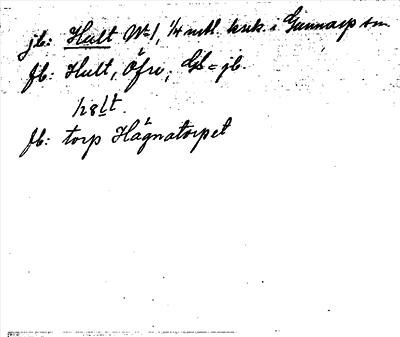 jb: Hult No 1, 1/4 mtl. krk. i Gunnarp sn
fb: Hult, Öfre; Gb = jb.
hɛlt.
fb: torp Hägnatorpet